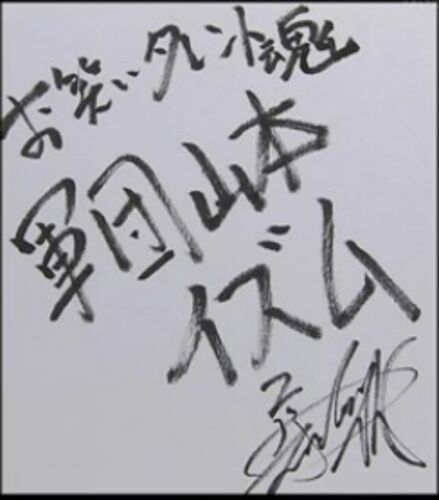 お笑いタレント魂
軍団山本
イズム